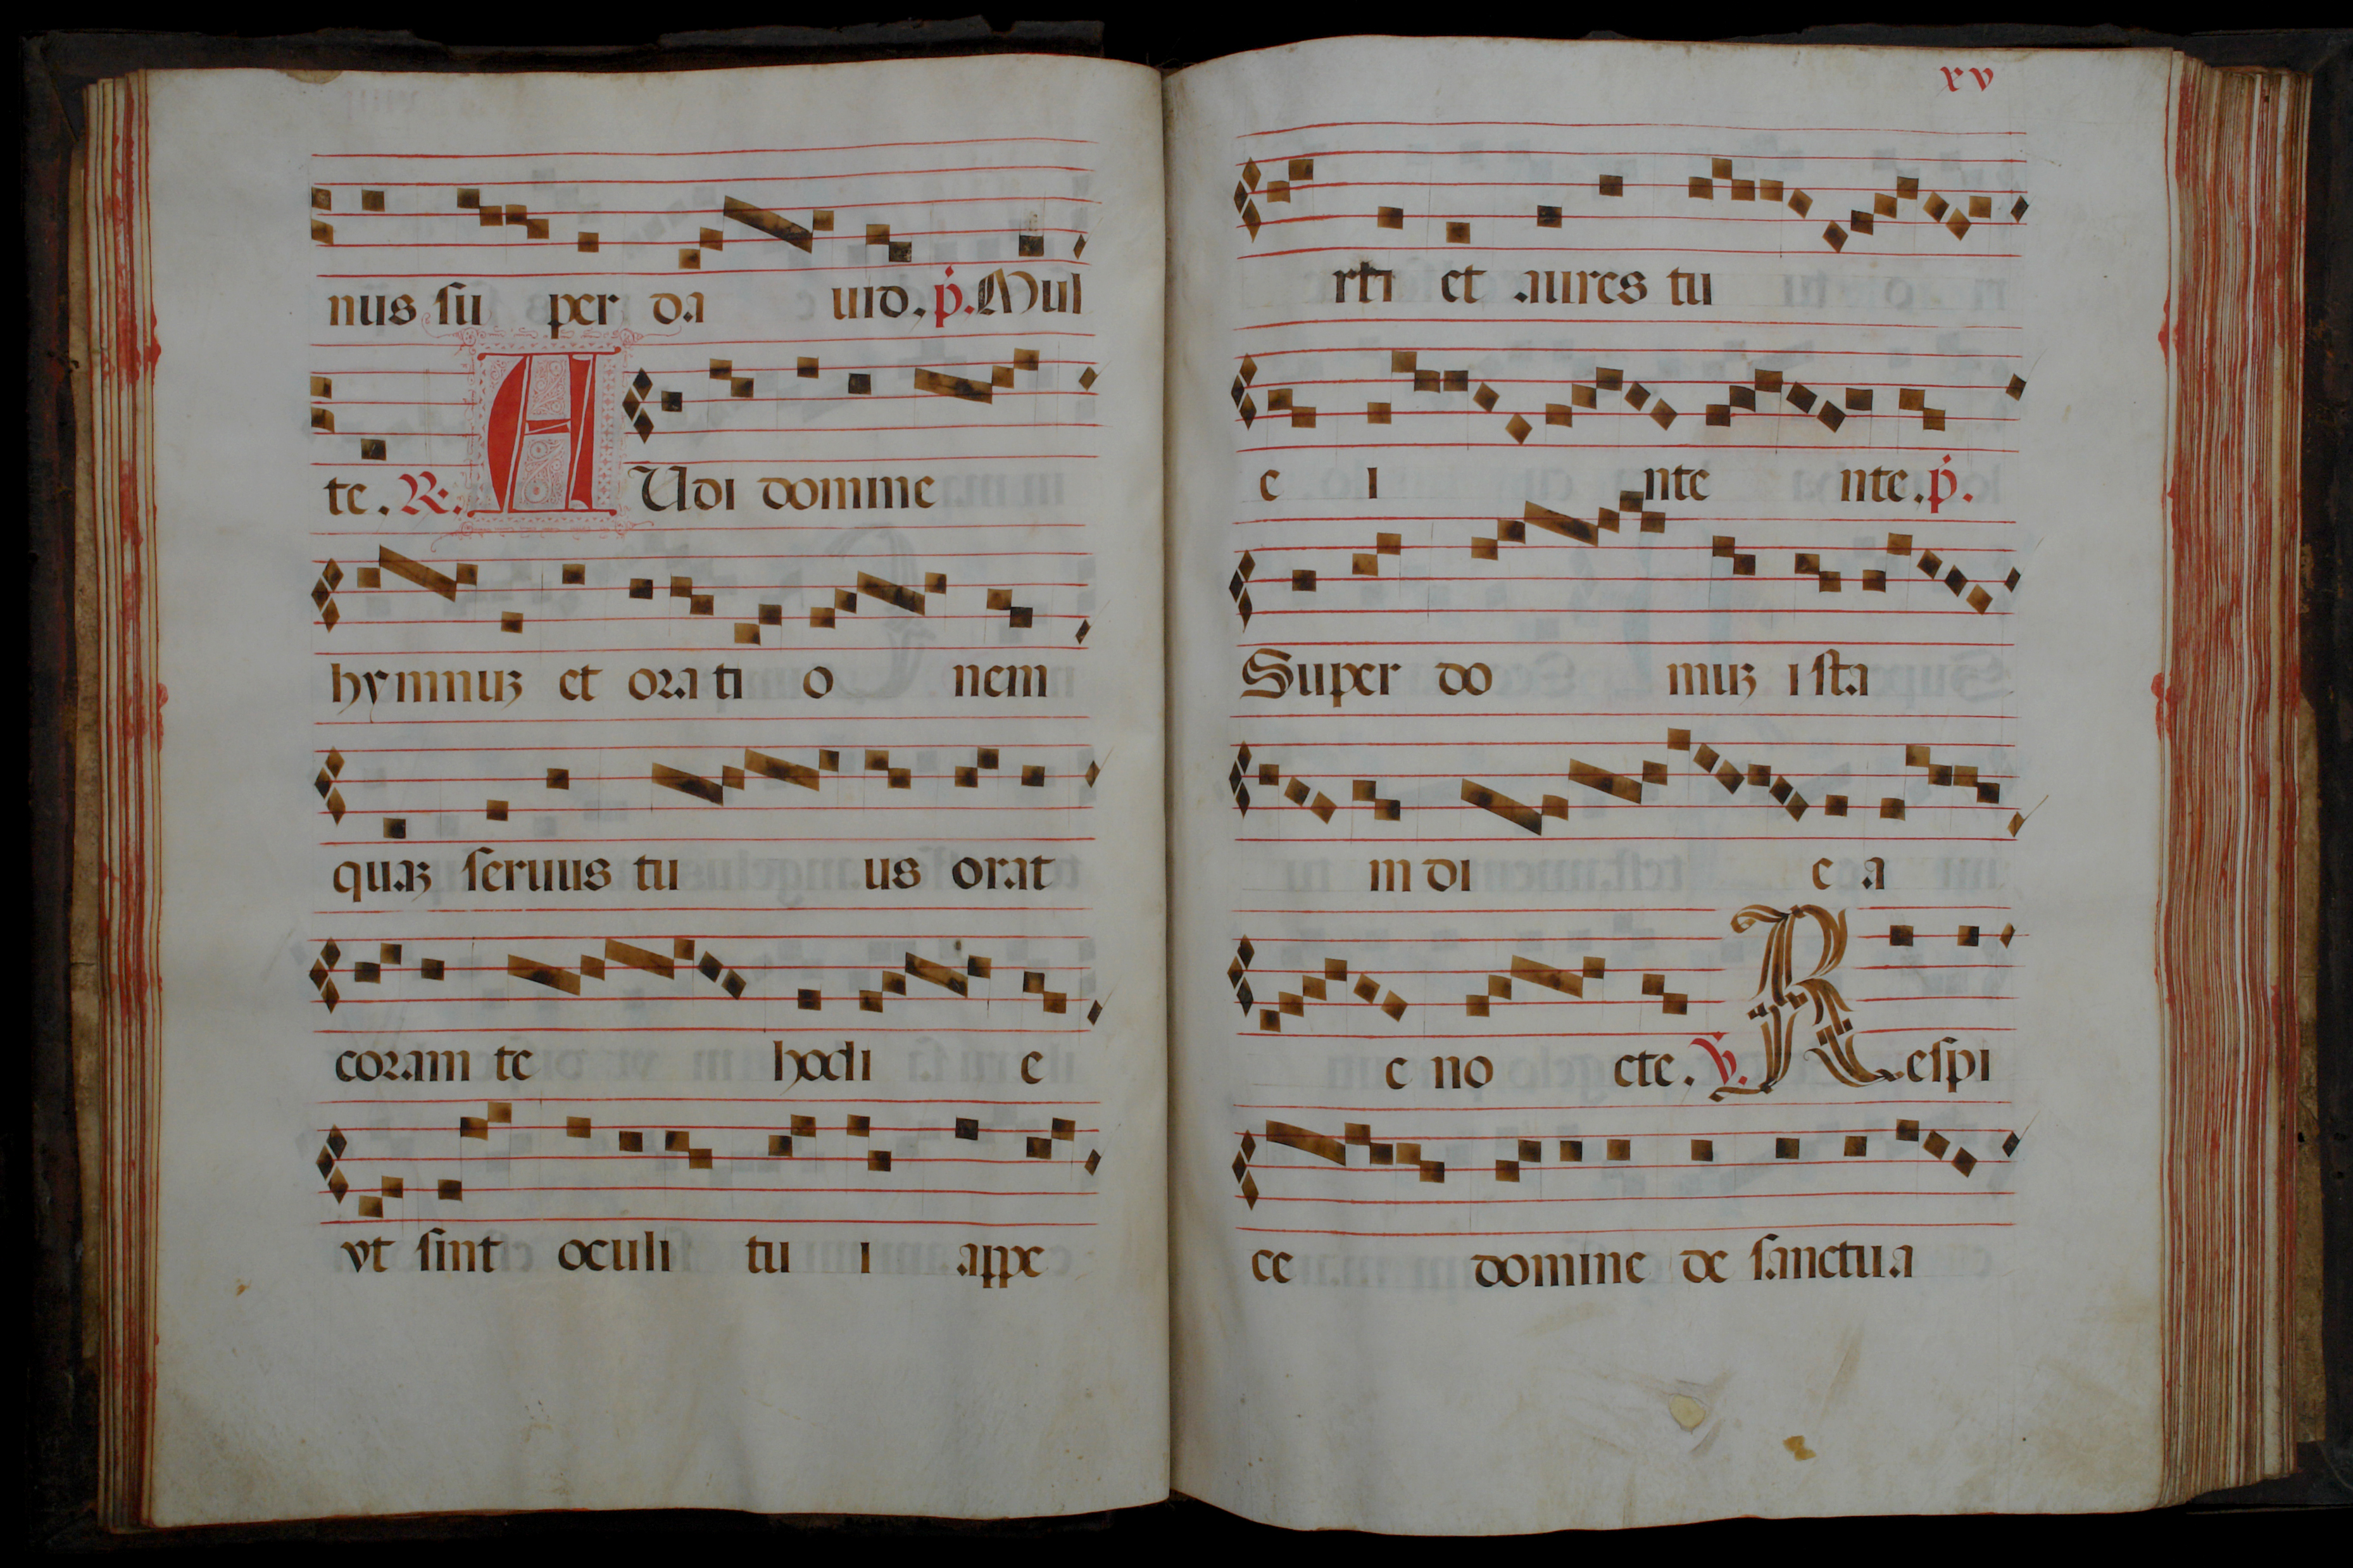 nus su per da uid. p. Mul
te. R. A Udi domine
hymnuʒ et orati o nem
quaʒ seruus tu us orat
coram te hodi e
vt sint oculi tu i appe
xv
rti et aures tu
e i nte nte. p.
Super do muʒ ista
in di e a
e no cte. V. Respi
ce domine de sanctua